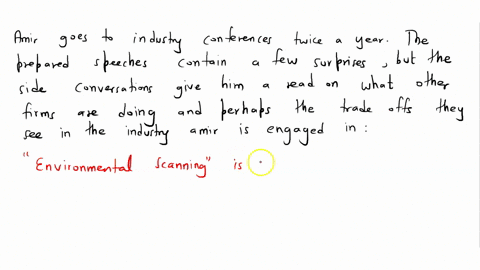 Amir goes to industry conferences twice a year. The
prepared speeches contain a few surprises, but the
side conversations give him a read on what other
firms are doing and perhaps the trade offs they
see in the industry amir is engaged in :
"Environmental scanning" is